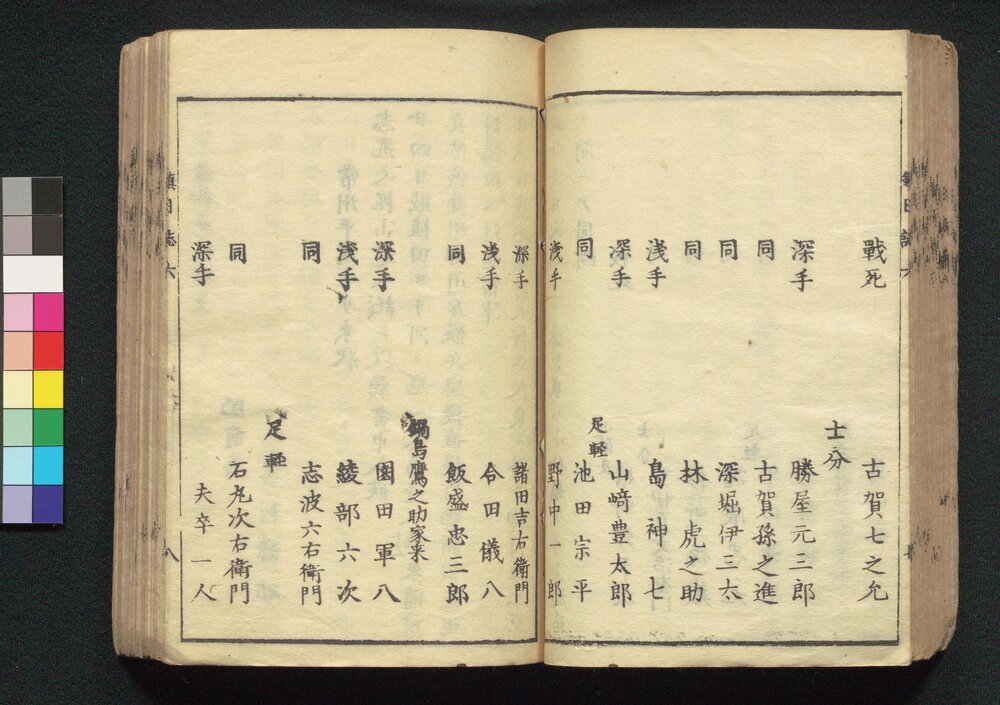 戰死　古賀七之允
士分
深手　勝屋元三郎
同　古賀孫之進
同　深堀伊三太
同　林虎之助
浅手　島神七
深手　山﨑豊太郎
足軽
同　池田宗平
浅手　野中一郎
深手　諸田吉右衛門
浅手　合田儀八
同　飯盛忠三郎
鍋島鷹之助家来
深手　園田軍八
浅手　綾部六次
同　志波六右衛門
足軽
同　石丸次右衛門
深手　夫卒一人
鎮日誌六
八